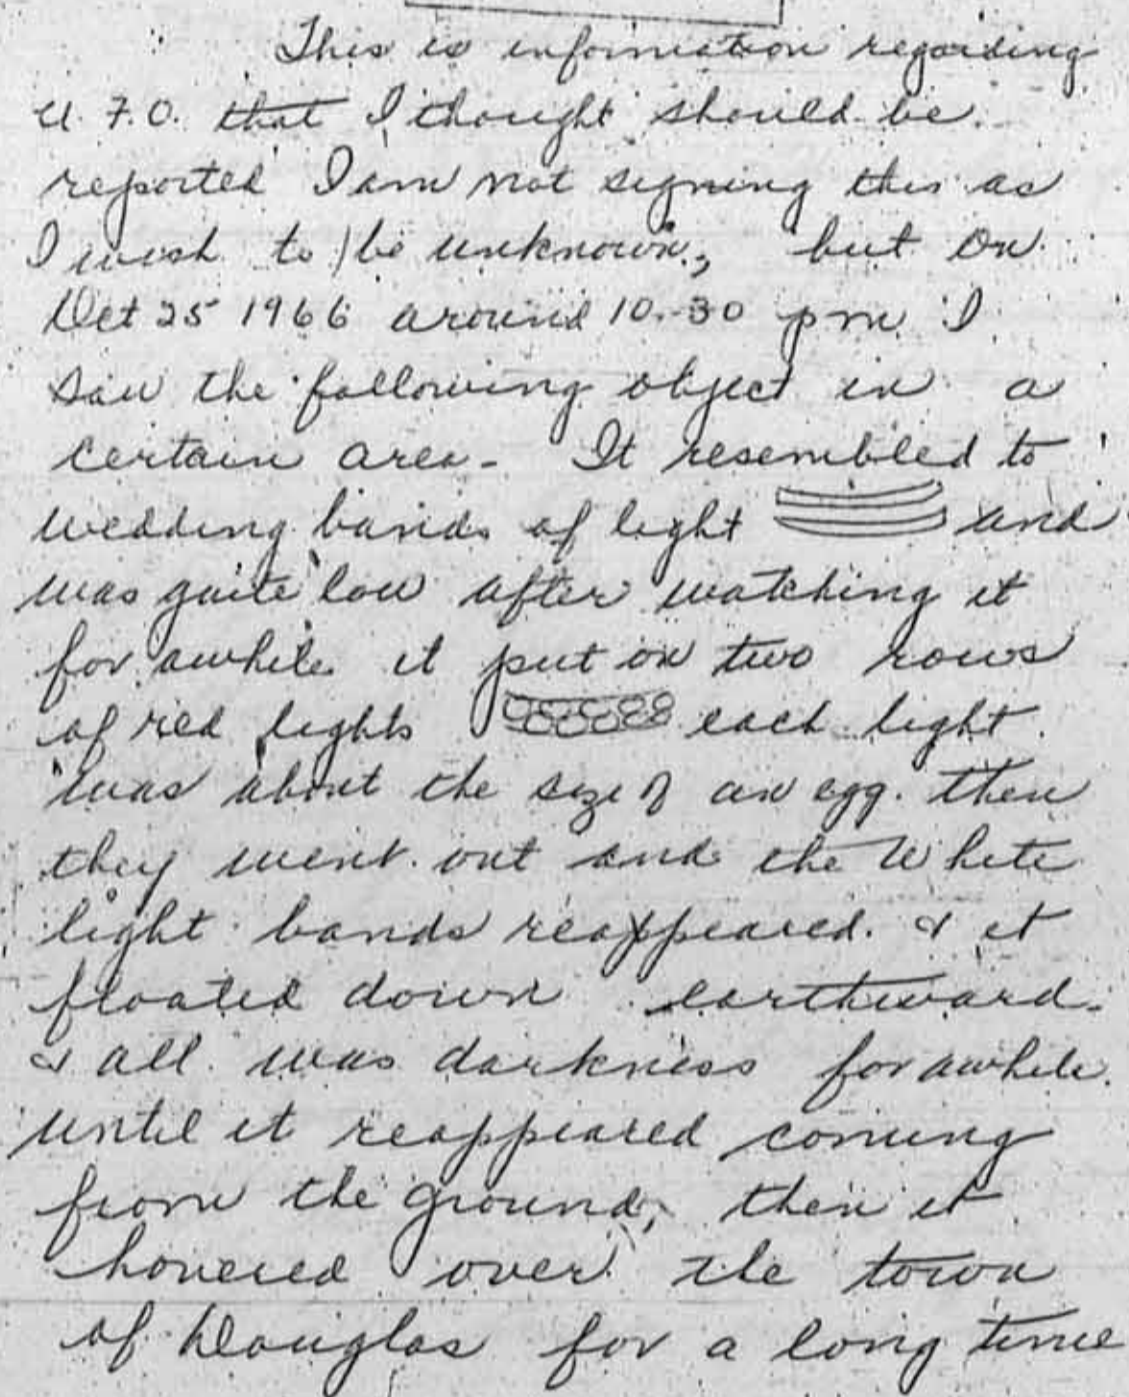 This is information regarding
U.F.O. that I thought should be.
reported I am not signing this as
I wish to be unknown, but on
Oct 25 1966 around 10.30 pm. I
saw the following object in a
certain area - It resembled to
wedding bands of light and
was quite low after watching it
for awhile it put on two rows
of red lights each light.
was about the size of an egg. then
they went out and the White
light bands reappeared. & it
floated down earthward.
& all was darkness for awhile.
until it reappeared coming
from the ground, then it
hovered over the town
of Douglas for a long time